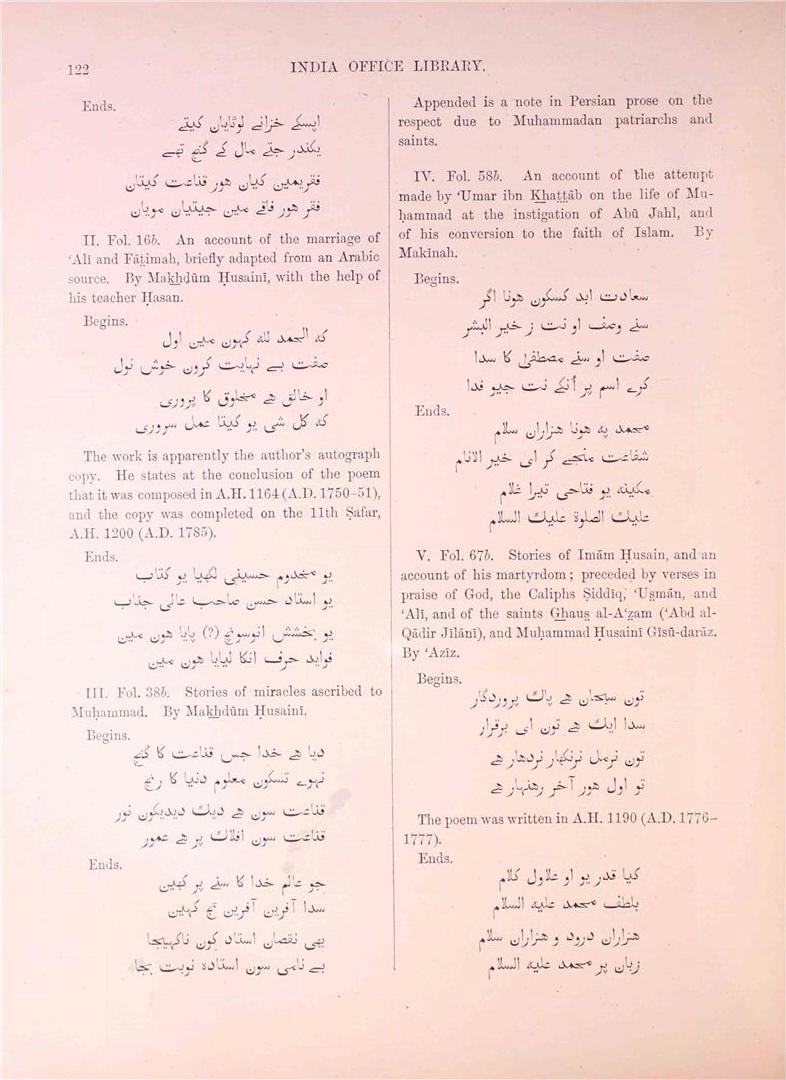 122
INDIA OFFICE LIBRARY.
Ends.
اپسکے خزانے لوٹایان کیتے
یکندر جتے مال کے گنج تھے
فقریمین کیان هور قناعت کیتان
فقر هور فاقے مین جیتیان مویان
II. Fol. 16b. An account of the marriage of
‘Alī and Fāṭimah, briefly adapted from an Arabic
source. By Makhdūm Ḥusainī, with the help of
his teacher Ḥasan.
Begins.
که الحمد لله کہون مین اول
صفت بے نہایت کرون خوش نول
او خالق هے مخلوق کا پروری
که کل شی یو کیتا عمل سروری
The work is apparently the author's autograph
copy. He states at the conclusion of the poem
that it was composed in A.H. 1164 (A.D. 1750-51),
and the copy was completed on the 11th Ṣafar,
A.H. 1200 (A.D. 1785).
Ends.
یو مخدوم حسینی لکھیا یو کتاب
یو استاد حسن صاحب عالی جناب
یو بخشش انوسونچ (?) پایا هون مین
فواید حرف انکا لیایا هون مین
III. Fol. 38b. Stories of miracles ascribed to
Muḥammad. By Makhdūm Ḥusainī.
Begins.
دیا هے خدا جس قناعت کا گنج
نہوے تسکون معلوم دنیا کا رنج
قناعت سون هے دیک دیدیکون نور
قناعت سون افلاک پر هے عمور
Ends.
جو عالم خدا کا سنے پر کہین
سدا آفرین آفرین تج کہین
یهی نقصان استاد کون ناکہیجا
بے نامی سون استاده نوبت بجا
Appended is a note in Persian prose on the
respect due to Muhammadan patriarchs and
saints.
IV. Fol. 58b. An account of the attempt
made by ‘Umar ibn Khaṭṭāb on the life of Mu-
ḥammad at the instigation of Abū Jahl, and
of his conversion to the faith of Islam. By
Makīnah.
Begins.
سعادت ابد کسکون هونا اگر
سنے وصف او نت ز خیر البشر
صفت او سنے مصطفیٰ کا سدا
کرے اسم پر آنکے نت جیو فدا
Ends.
محمد په هونا هزاران سلام
شفاعت منجے کر ای خیر الانام
مکینه یو فتاحی تیرا غلام
علیک الصلوة علیک السلام
V. Fol. 67b. Stories of Imām Ḥusain, and an
account of his martyrdom; preceded by verses in
praise of God, the Caliphs Ṣiddīq, ‘Usmān, and
‘Alī, and of the saints Ghaus al-A‘zam (‘Abd al-
Qādir Jīlānī), and Muḥammad Ḥusainī Gīsū-darāz.
By ‘Azīz.
Begins.
تون سبحان هے پاک پروردگار
سدا ایک هے تون ای برقرار
تون نرمل نرنکهار نردهار هے
تو اول هور آخر رهنہار هے
The poem was written in A.H. 1190 (A.D. 1776-
1777).
Ends.
کیا قدر یو او علاول کلام
بلطف محمد علیه السلام
هزاران درود و هزاران سلام
زبان پر محمد علیه السلام